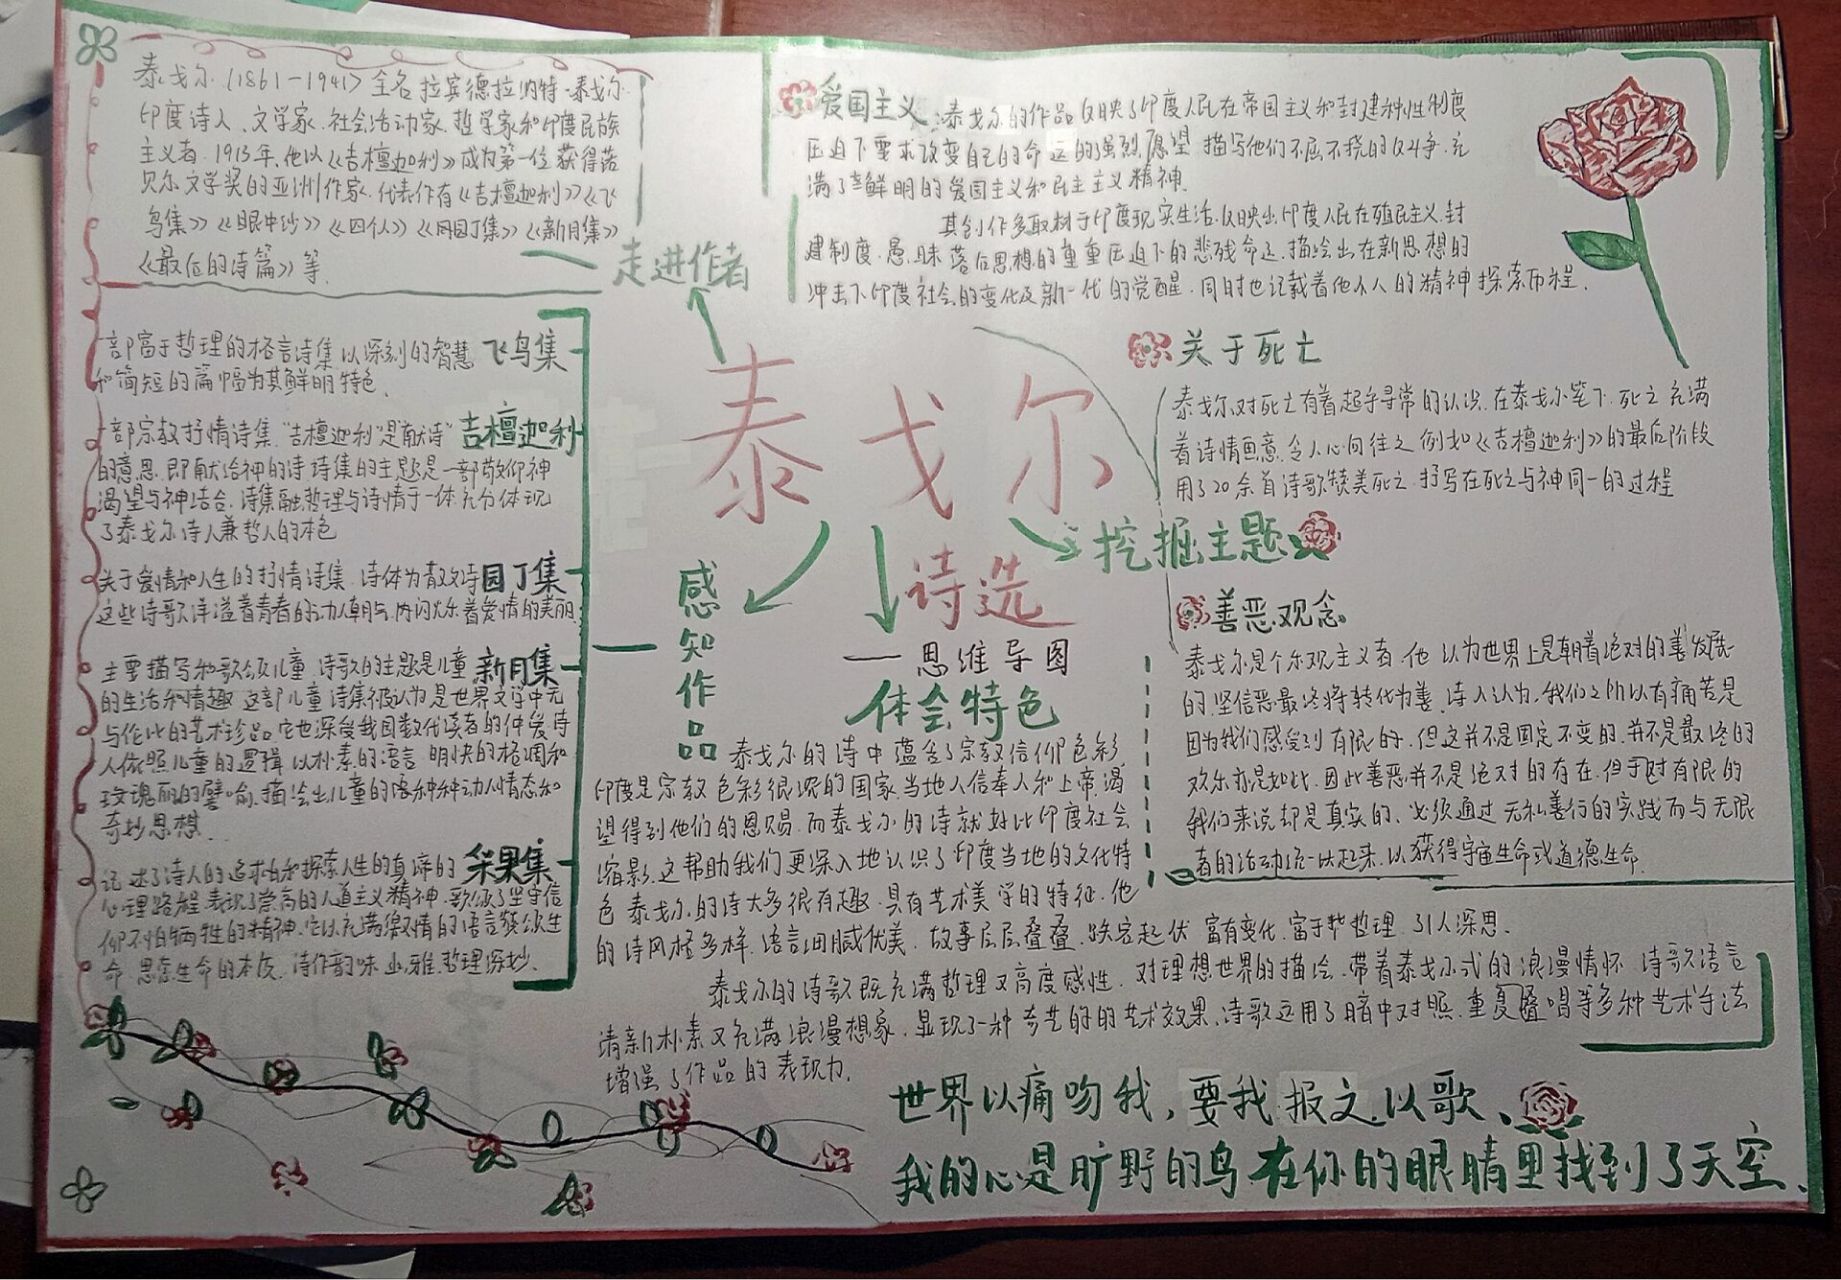 泰戈尔(1861-1941)全名拉宾德拉纳特·泰戈尔
印度诗人、文学家、社会活动家、哲学家和印度民族
主义者.1913年,他以《吉檀迦利》成为第一位获得诺
贝尔文学奖的亚洲作家.代表作有《吉檀迦利》《飞
鸟集》《眼中沙》《四个人》《园丁集》《新月集》
《最后的诗篇》等
走进作者
一部富于哲理的格言诗集以深刻的智慧 飞鸟集
和简短的篇幅为其鲜明特色.
一部宗教抒情诗集."吉檀迦利"是"献诗" 吉檀迦利
的意思.即献给神的诗.诗集的主题是一部敬仰神
渴望与神结合.诗集融哲理与诗情于一体.充分体现
了泰戈尔诗人兼哲人的本色
关于爱情和人生的抒情诗集.诗体为散文诗 园丁集
这些诗歌洋溢着青春的动人朝气.闪烁着爱情的美丽
主要描写和歌颂儿童.诗歌的主题是儿童 新月集
的生活和情趣.这部儿童诗集被认为是世界文学中无
与伦比的艺术珍品.它也深受我国数代读者的钟爱.诗
人依照儿童的逻辑.以朴素的语言.明快的格调和
玫瑰丽的譬喻.描绘出儿童的各种种动人情态和
奇妙思想.
记述了诗人的追求和探索人生的真谛的 采果集
心理路程.表现了崇高的人道主义精神.歌颂了坚守信
仰不怕牺牲的精神.它以充满激情的语言赞颂生
命.思索生命的本质.诗作韵味幽雅.哲理深妙.
泰戈尔
诗选
—思维导图
感知作品
体会特色
泰戈尔的诗中蕴含了宗教信仰色彩
印度是宗教色彩很浓的国家.当地人信奉人和上帝.渴
望得到他们的恩赐.而泰戈尔的诗就好比印度社会
缩影.这帮助我们更深入地认识了印度当地的文化特
色.泰戈尔的诗大多很有趣.具有艺术美学的特征.他
的诗风格多样.语言细腻优美.故事层层叠叠.跌宕起伏.富有变化.富于哲理.引人深思.
泰戈尔的诗歌既充满哲理又高度感性.对理想世界的描绘.带着泰戈尔式的浪漫情怀.诗歌语言
清新朴素又充满浪漫想象.显现了一种奇艺的的艺术效果.诗歌运用了暗中对照.重复叠唱等多种艺术手法
增强了作品的表现力.
爱国主义:泰戈尔的作品反映了印度人民在帝国主义和封建种性制度
压迫下要求改变自己的命运的强烈愿望.描写他们不屈不挠的反斗争.充
满了鲜明的爱国主义和民主主义精神.
其创作多取材于印度现实生活.反映出印度人民在殖民主义.封
建制度.愚昧落后思想的重重压迫下的悲残命运.描绘出在新思想的
冲击下印度社会的变化及新一代的觉醒.同时也记载着他个人的精神探索历程.
关于死亡
泰戈尔对死亡有着超乎寻常的认识.在泰戈尔笔下.死亡充满
着诗情画意.令人心向往之.例如《吉檀迦利》的最后阶段
用了20余首诗歌赞美死亡.抒写在死亡与神同一的过程
挖掘主题
善恶观念
泰戈尔是个乐观主义者.他认为世界上是朝着绝对的善发展
的.坚信恶最终将转化为善.诗人认为.我们之所以有痛苦是
因为我们感受到有限的.但这并不是固定不变的.并不是最终的
欢乐亦是如此.因此善恶并不是绝对的存在.但于对有限的
我们来说却是真实的、必须通过无私善行的实践而与无限
者的活动统一以起来.以获得宇宙生命或道德生命.
世界以痛吻我,要我报文以歌、
我的心是旷野的鸟在你的眼睛里找到了天空.